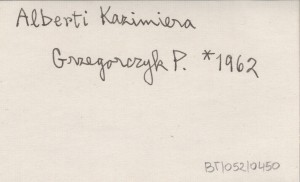 Alberti Kazimiera
Grzegorczyk P. *1962
BT/052/0450